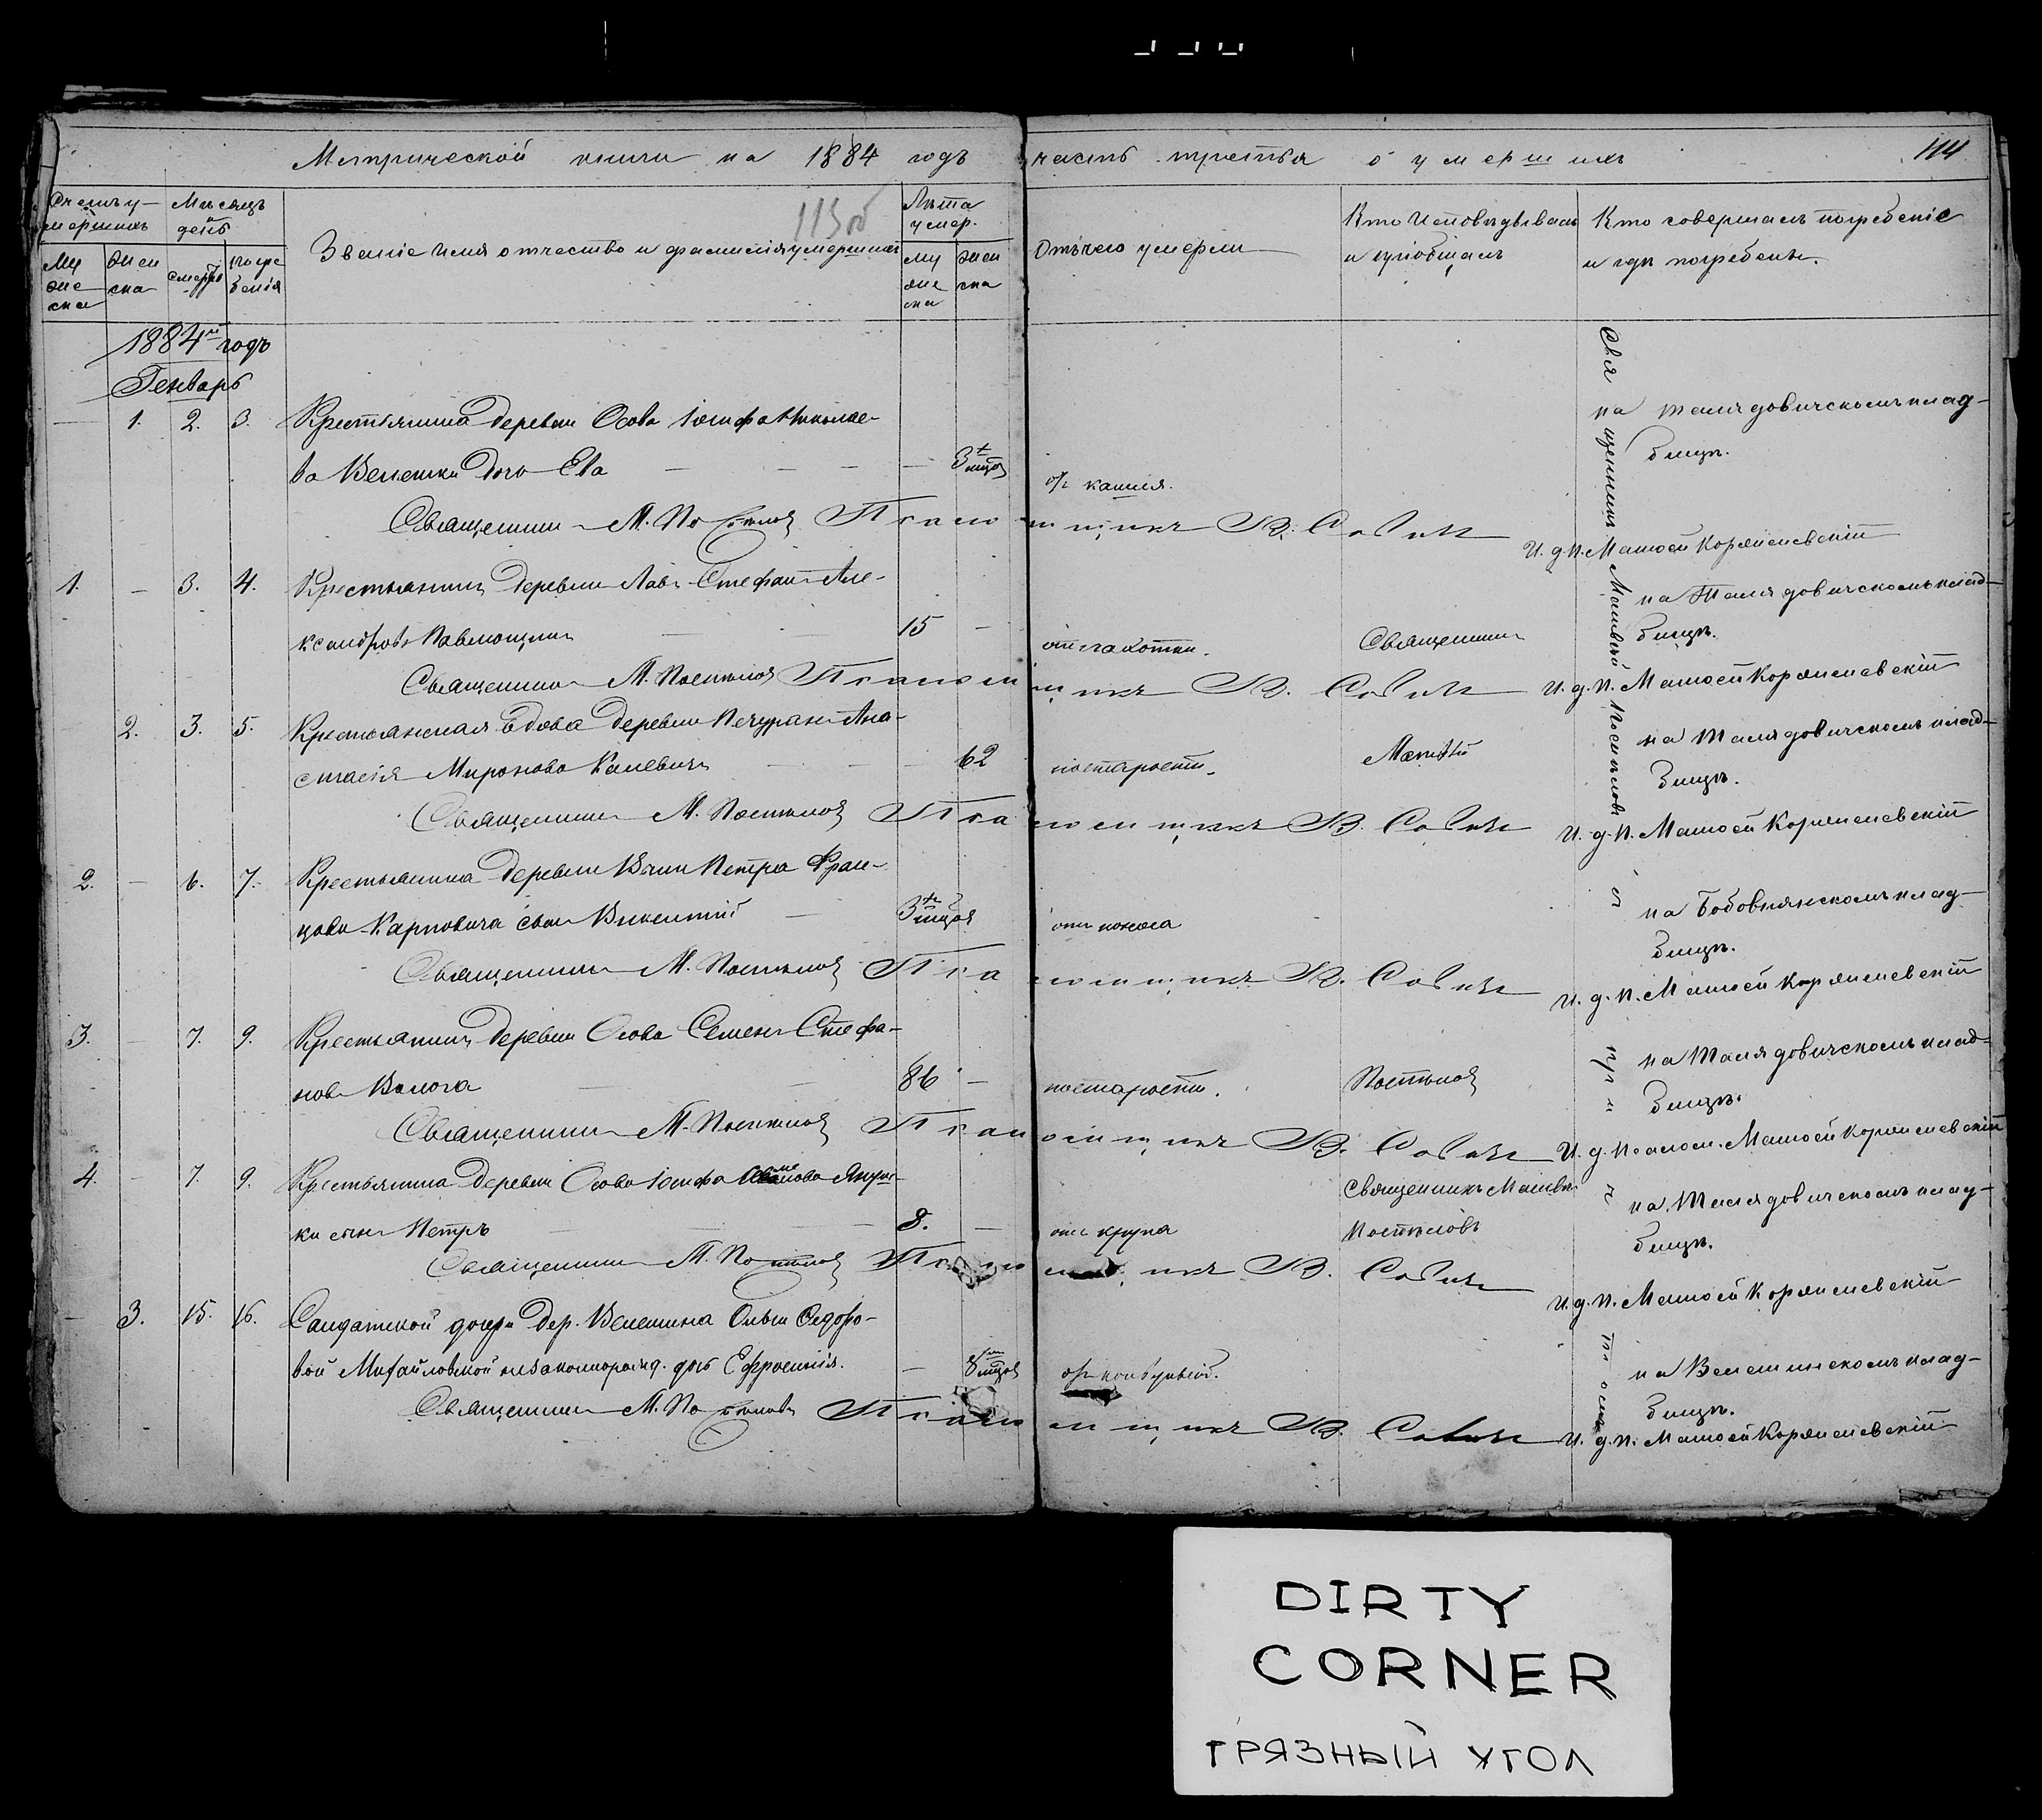 Метрической книги на 1884 годъ часть третья о умершихъ
114
113 об
Счетъ у-
мершихъ
Мѣсяцъ
и
день
Званіе имя отчество и фамилія умершихъ
Лѣта
умер.
Отъ чего умерли
Кто исповѣдывалъ
и пріобщалъ
Кто совершалъ погребеніе
и гдѣ погребены.
Му
же
ска
Жен
ска
смерти
погре
бенія
Му
же
ска
Жен
ска
1884й годъ
Генварь
— 1. 2. 3. Крестьянина деревни Осова Іосифа Николае-
ва Велешки дочь Ева — — — — 3х мѣсяц
отъ кашля.
на Талядовичскомъ клад-
бищѣ.
Священникъ М. Постѣловъ Псаломщикъ В. Савичъ
И. д. п. Матѳей Корженевскій
1. — 3. 4. Крестьянинъ деревни Лавы Стефанъ Але-
ксандровъ Павлющикъ — 15 —
отъ чахотки.
Священникъ
на Талядовичскомъ клад-
бищѣ.
Священникъ М. Постѣловъ Псаломщикъ В. Савичъ
И. д. п. Матѳей Корженевскій
2. 3. 5. Крестьянская вдова деревни Печуранъ Ана-
стасія Миронова — — 62
по старости.
Матѳей
на Талядовичскомъ клад-
бищѣ.
Священникъ М. Постѣловъ Псаломщикъ В. Савичъ
И. д. п. Матѳей Корженевскій
2. — 6. 7. Крестьянина деревни Петра Фран-
цова Карповича сынъ Викентій — 3х мѣсяц
отъ поноса
на Бобовнянскомъ клад-
бищѣ.
Священникъ М. Постѣловъ Псаломщикъ В. Савичъ
И. д. п. Матѳей Корженевскій
3. — 7. 9. Крестьянинъ деревни Осова Семенъ Стефа-
новъ Волога — — 86 —
по старости.
Постѣловъ
на Талядовичскомъ клад-
бищѣ.
Священникъ М. Постѣловъ Псаломщикъ В. Савичъ
И. д. псалом. Матѳей Корженевскій
4. — 7. 9. Крестьянина деревни Осова Іосифа
ки сынъ Петръ — — — 8. —
отъ крупа
Священникъ Матвѣй
Постѣловъ
на Талядовичскомъ клад-
бищѣ.
Священникъ М. Постѣловъ Псаломщикъ В. Савичъ
И. д. п. Матѳей Корженевскій
— 3. 15. 16. Солдатской дочери дер. Велешина Ольги Сидоро-
вой Михайловской незаконнорожд. дочь Ефросинія. — 8 мѣсяц
отъ конвульсій.
на Велешинскомъ клад-
бищѣ.
Священникъ М. Постѣловъ Псаломщикъ В. Савичъ
И. д. п. Матѳей Корженевскій
Священникъ Матвѣй Постѣловъ съ причтомъ
DIRTY
CORNER
ГРЯЗНЫЙ УГОЛ